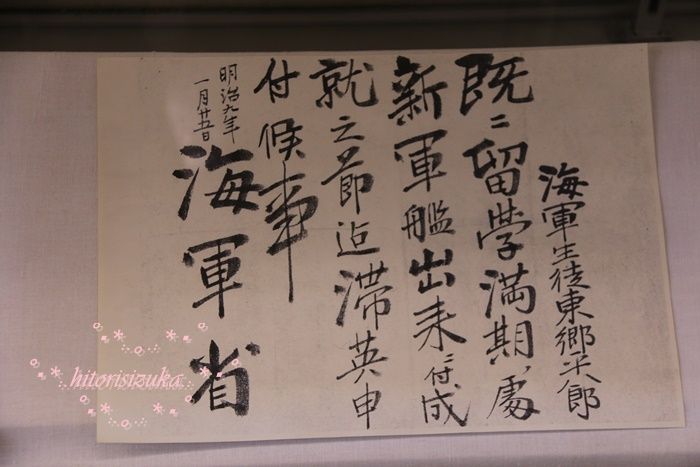 海軍生徒東郷平八郎
既ニ留学満期ノ處
新軍艦出来ニ付成
就之節迠滞英申
付候事
明治九年
一月廿五日
海軍省
hitorisizuka